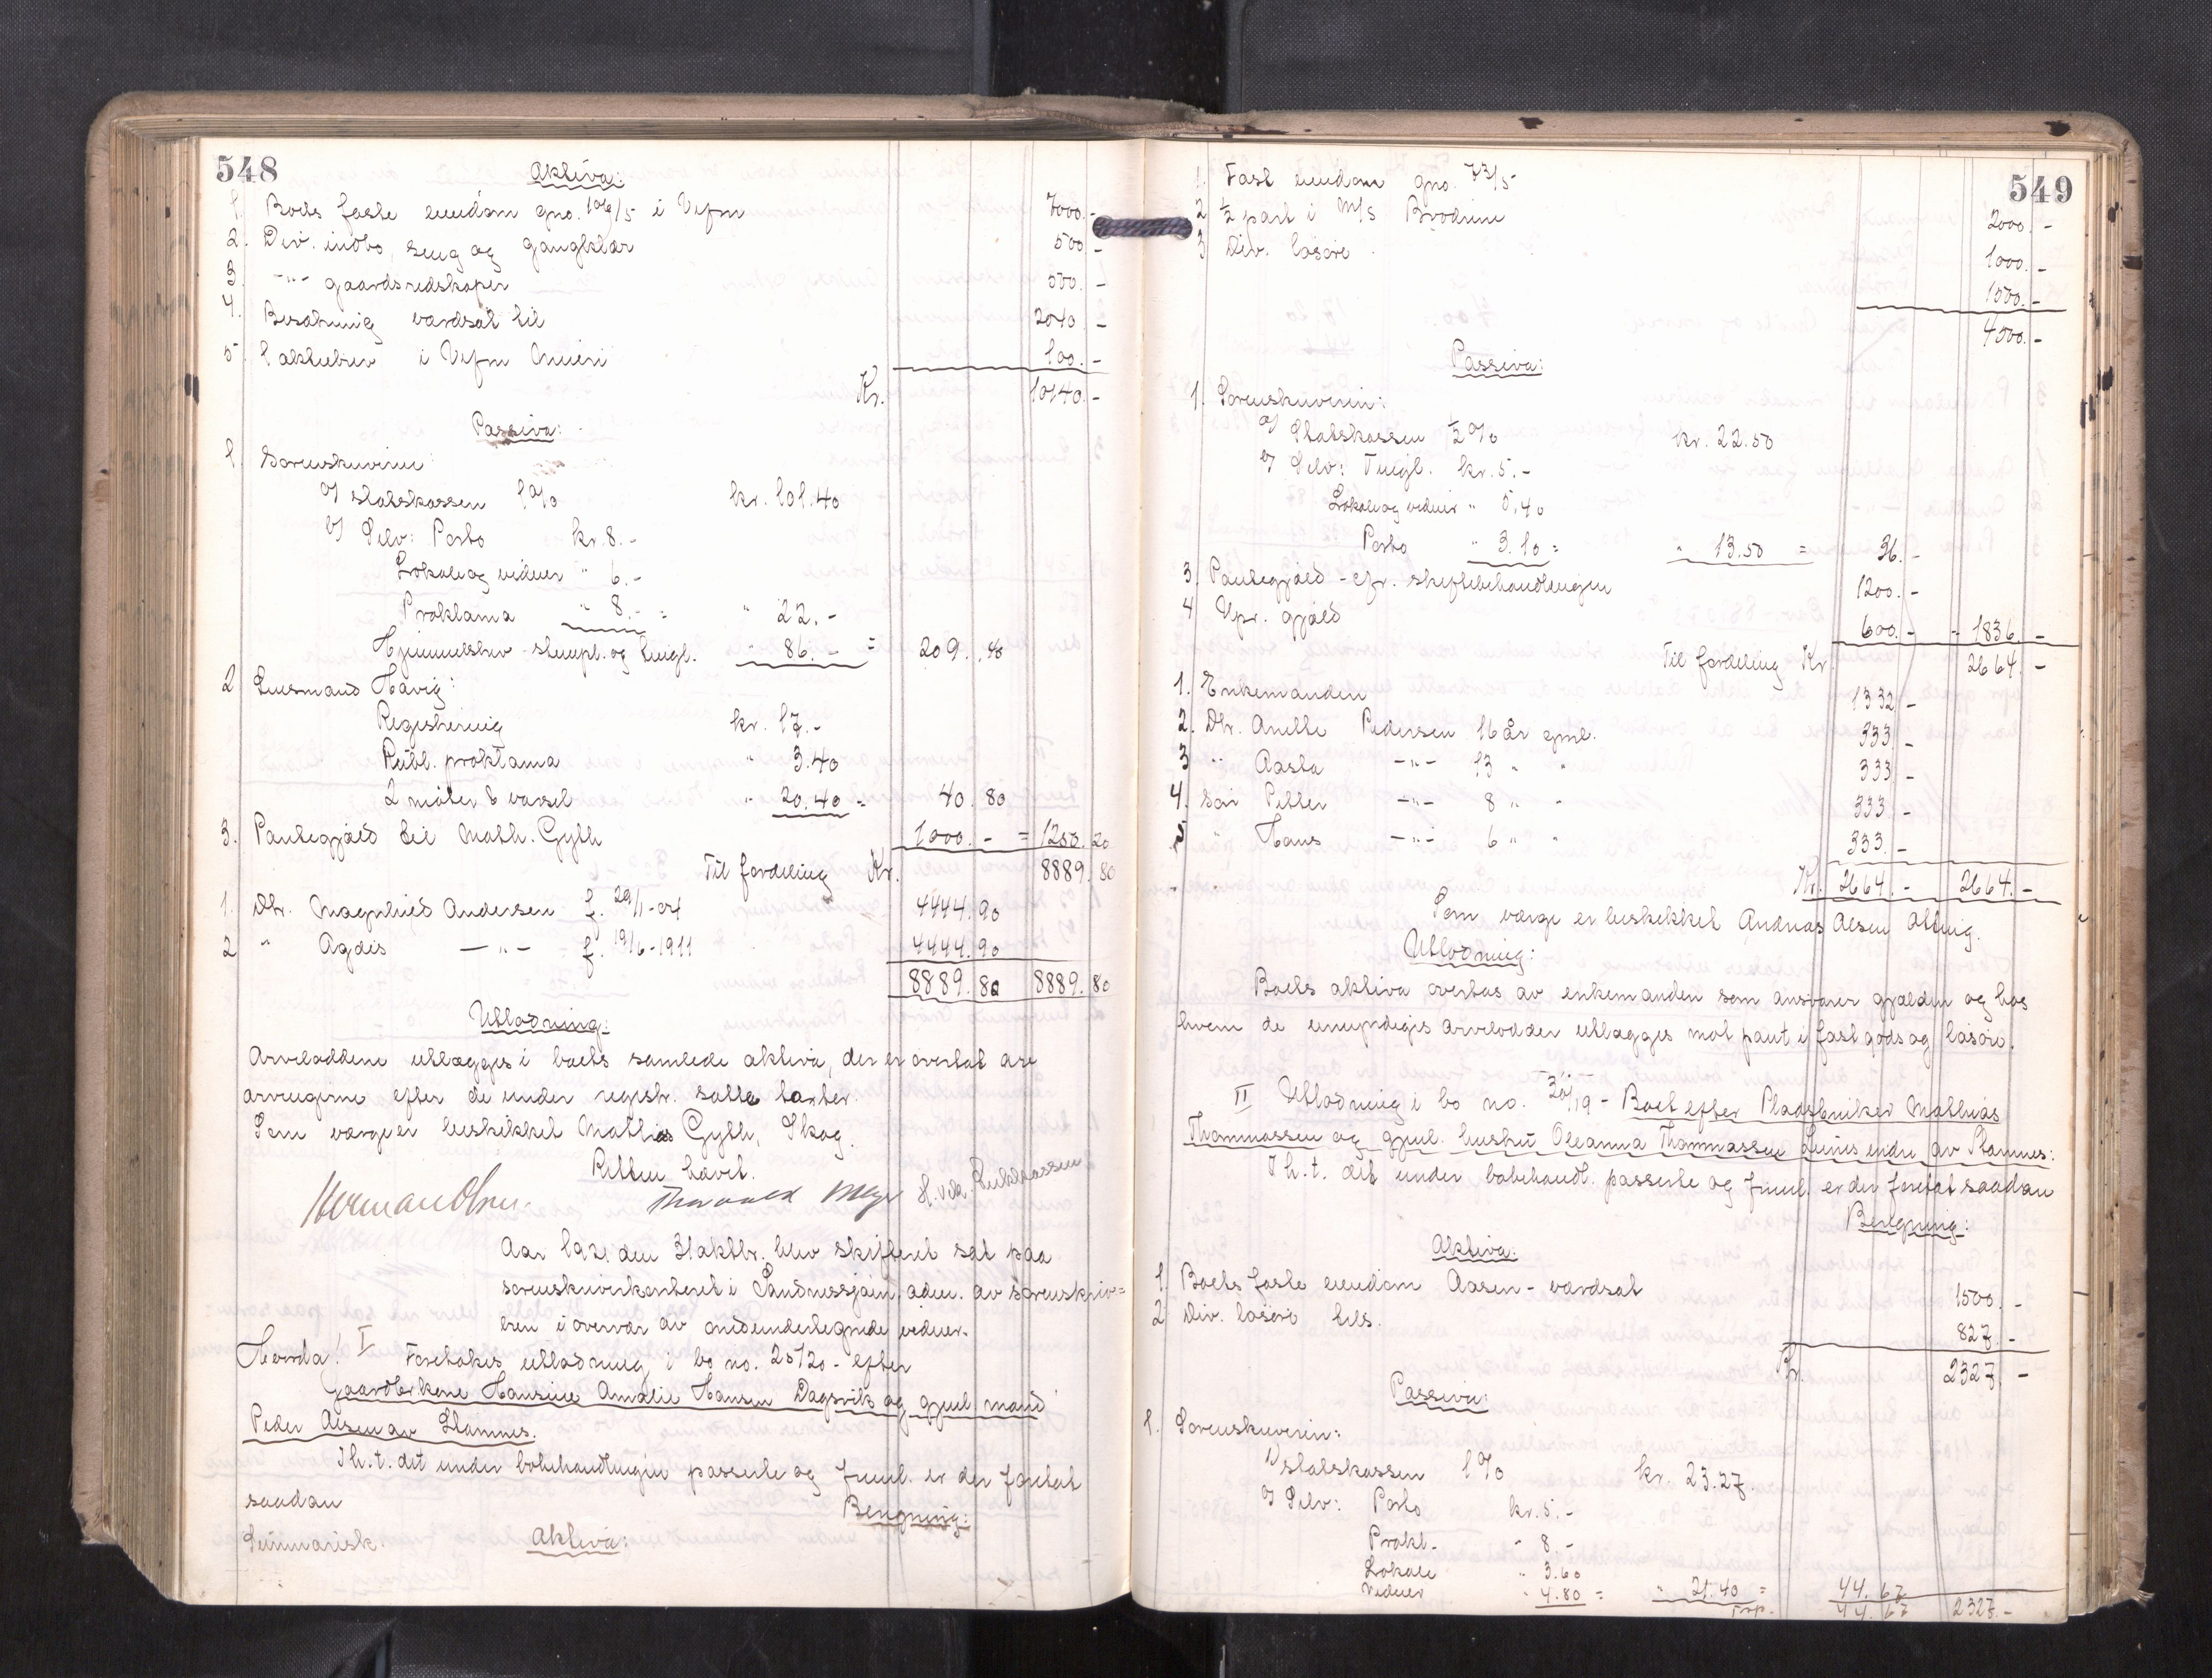 548
Aktiva:
1. Boets faste eiendom gno. 106/5 i Vefsn 7000.-
2. Div. indbo, seng og gangklær 500.-
3. -"- gaardsredskaper 500.-
4. Besætning værdsat til 2040.-
5. 1 aktiebrev i Vefsn Meieri 100.-
Kr. 10140.-
Passiva:
1. Sorenskriveren:
a) statskassen 1 % kr. 101.40
b) Selv: Porto kr. 8.-
Lokale og vidner " 6.-
Proklama " 8.- = " 22.-
Hjemmelsbrev - stempl. og tingl. " 86.- = 209.40
2 Lensmand Havig:
Registrering kr. 17.-
Publ. proklama " 3.40
2 møter & varsel " 20.40 = 40.80
3. Pantegjæld til Math. Gytli 1000.- = 1250.20
Til fordeling Kr. 8889.80
1. Dtr. Magnhild Andersen f. 29/1-04 4444.90
2 " Agdis -"- f. 19/6-1911 4444.90
8889.80 8889.80
Utlodning:
Arveloddene utlægges i boets samlede aktiva, der er overtat av
arvingerne efter de under registr. satte takster.
Som værge er beskikket Mathias Gytli, Skog.
Retten hævet.
Herman Olsen. Thorvald Meyer
Aar 1921 den 31 oktbr. blev skifteret sat paa
sorenskriverkontoret i Sandnessjøen, adm. av sorenskriv=
eren i overvær av onderundertegnede vidner.
Hvorda! I Foretokes utlodning i bo no. 25/20 - efter
Gaardbrkone Hansine Amalie Hansen Dagsvik og gjenl. mand
Peder Alsen av Stamnes.
I h. t. det under bobehandlingen passerte og fremk. er der foretat
saadan Beregning:
Summarisk. Aktiva:
549
1. Fast eiendom gno. 73/5 2000.-
2 1/2 part i M/S Brødrene 1000.-
3 Div. løsøre 1500.-
4500.-
Passiva:
1. Sorenskriveren:
a) Statskassen 1/2 % kr. 22.50
b) Selv: Tingl. kr. 5.-
Lokale og vidner " 5.40
Porto " 3.10 = " 13.50 = 36.-
3. Pantegjæld - cfr. skiftebehandlingen 1200.-
4 Upr. gjæld 600.- - 1836.-
Til fordeling Kr. 2664.-
1. Enkemanden 1332.-
2. Dtr. Anette Pedersen 16 år gml. 333.-
3 " Aasta -"- 13 " " 333.-
4. Søn Petter -"- 8 " " 333.-
5 " Hans -"- 6 " " 333.-
Kr. 2664.- 2664.-
Som værge er beskikket Andreas Alsen
Utlodning:
Boets aktiva overtas av enkemanden som ansvarer gjælden og hos
hvem de umyndiges arvelodder utlægges mot pant i fast gods og løsøre.
II Utlodning i bo no. 30/19 - Boet efter Pladsbruker Mathias
Thommassen og gjenl. hustru Oleanna Thommassen Leines endre av Stamnes:
I h. t. det under bobehandl. passerte og fremk. er der foretat saadan
Beregning:
Aktiva:
1. Boets faste eiendom Aasen - værdsat 1500.-
2 Div. løsøre tils. 827.-
Kr. 2327.-
Passiva:
1. Sorenskriveren:
1) statskassen 1 % kr. 23.27.
2) Selv: Porto kr. 5.-
Prokl. " 8.-
Lokale " 3.60
Vidner " 4.80 = " 21.40 = 44.67
Trsp. 44.67 2327.-